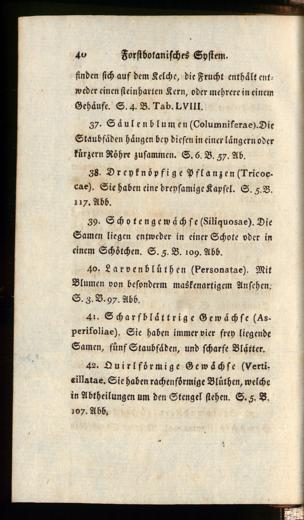 40 Forstbotanisches System.
finden sich auf dem Kelche, die Frucht enthält ent-
weder einen steinharten Kern, oder mehrere in einem
Gehäuse. S. 4. B. Tab. LVIII.
37. Säulenblumen (Columniferae). Die
Staubfäden hängen bey diesen in einer längern oder
kürzern Röhre zusammen. S. 6. B. 57. Ab.
38. Dreyknöpfige Pflanzen (Tricoc-
cae). Sie haben eine dreysamige Kapsel. S. 5. B.
117. Abb.
39. Schotengewächse (Siliquosae). Die
Samen liegen entweder in einer Schote oder in
einem Schötchen. S. 5. B. 109. Abb.
40. Larvenblüthen (Personatae). Mit
Blumen von besonderm maskenartigem Ansehen.
S. 3. B. 97. Abb.
41. Scharfblättrige Gewächse (As-
perifoliae). Sie haben immer vier frey liegende
Samen, fünf Staubfäden, und scharfe Blätter.
42. Quirlförmige Gewächse (Verti-
cillatae. Sie haben rachenförmige Blüthen, welche
in Abtheilungen um den Stengel stehen. S. 5. B.
107. Abb.